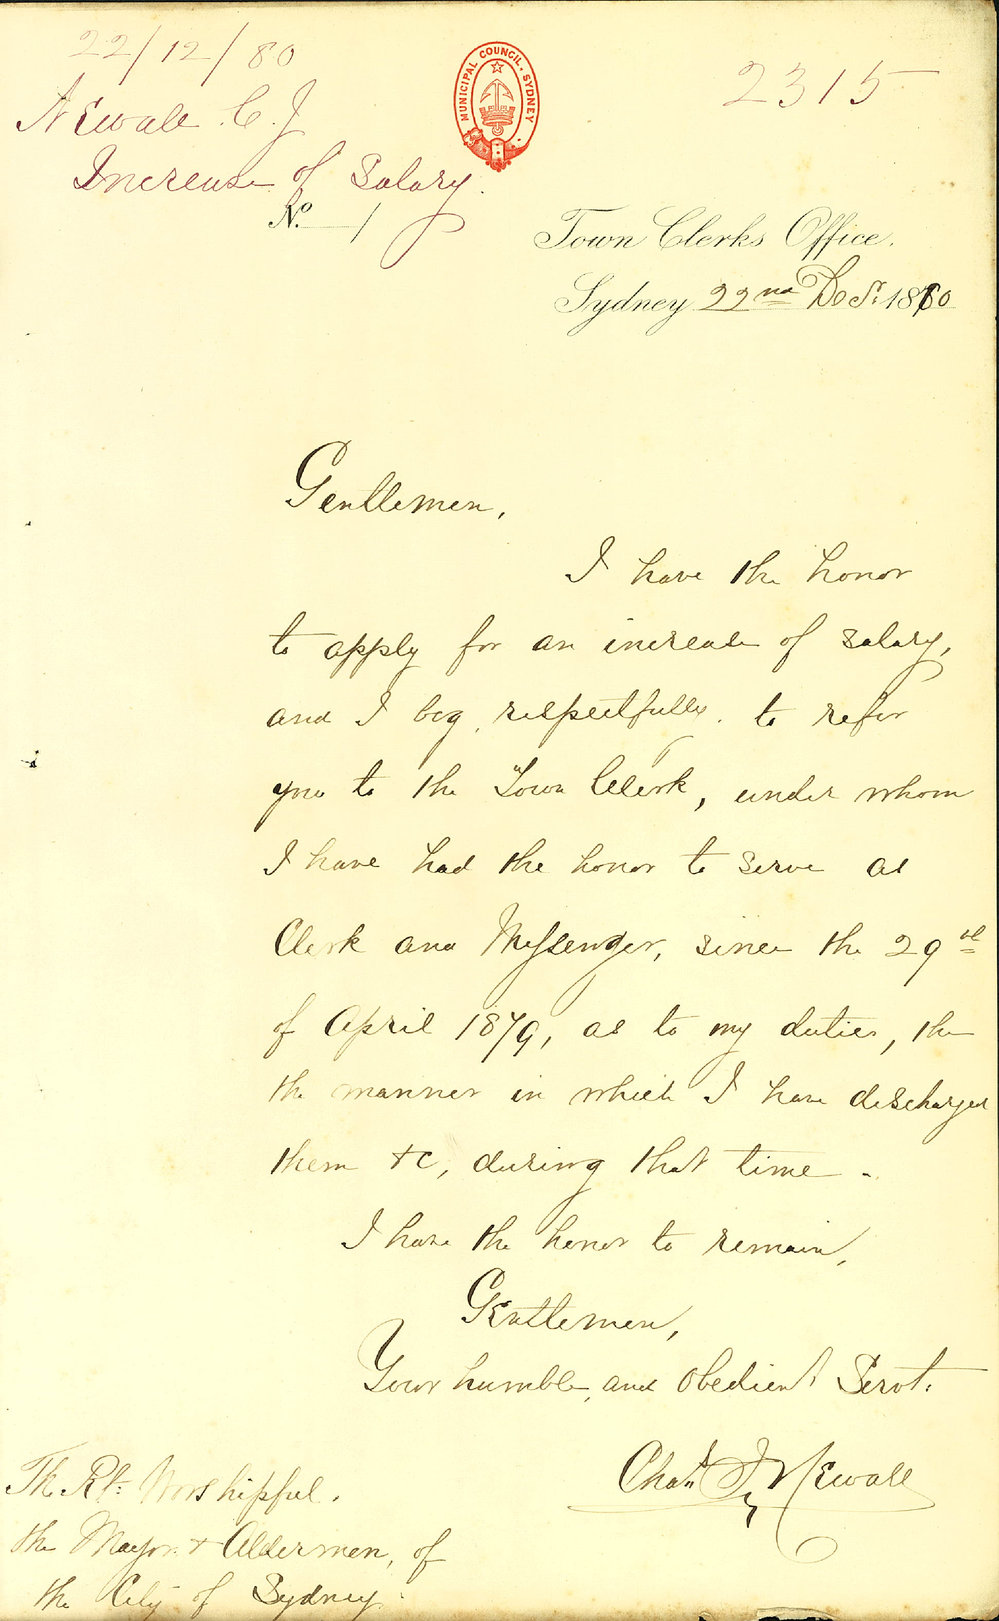 22/12/80
2315
MUNICIPAL COUNCIL, SYDNEY
Newall C. J
Increase of Salary.
No. 1
Town Clerks Office.
Sydney 22nd Decr. 1880
Gentlemen,
I have the honor
to apply for an increase of salary,
and I beg, respectfully, to refer
you to the Town Clerk, under whom
I have had the honor to serve as
Clerk and Messenger, since the 29th
of April 1879, as to my duties, the
the manner in which I have discharged
them &c, during that time.
I have the honor to remain,
Gentlemen,
Your humble, and obedient Servt.
Chas. J. Newall
The Rt. Worshipful.
the Mayor & Aldermen, of
the City of Sydney.